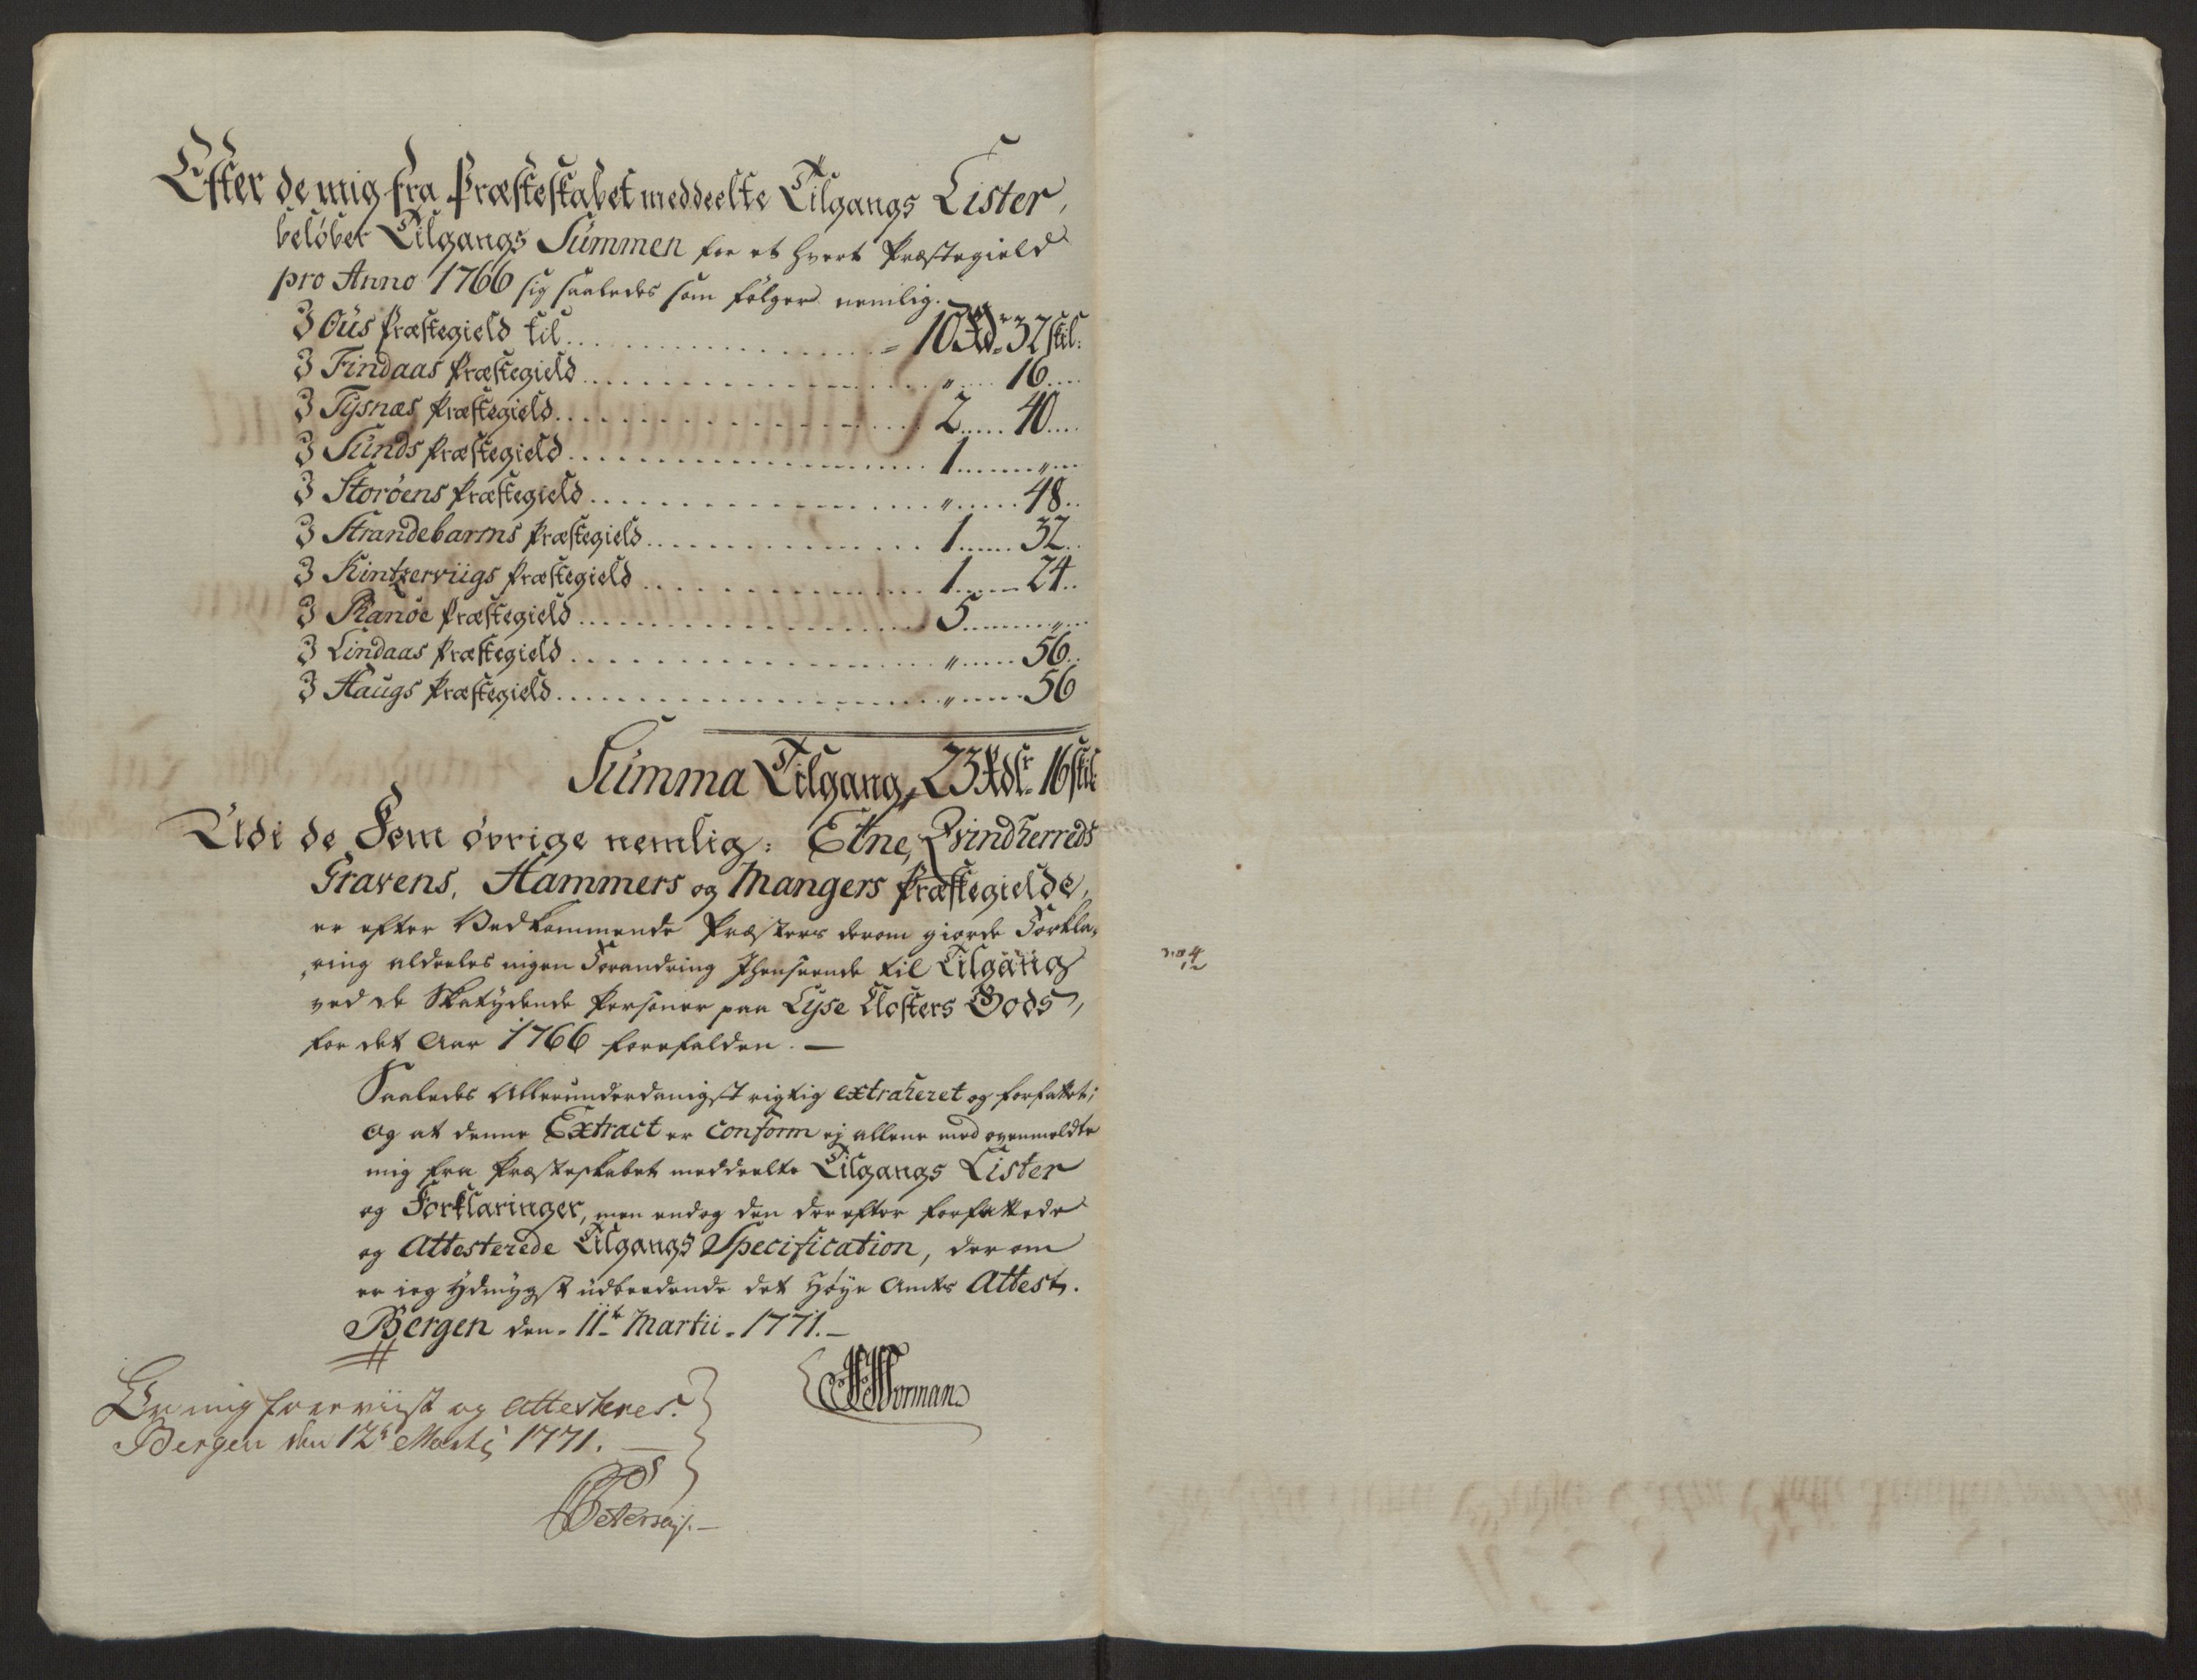 Efter de mig fra Præsteskabet meddeelte Tilgangs Lister,
beløber Tilgangs Summen for et hvert Præstegield
pro Anno 1766 sig saaledes som følger nemlig.
I Øüs Præstegield til = 10 Rdr 32 skil:
I Findaas Præstegield " 16
I Tysnæs Præstegield 2 40
I Sünds Præstegield 1 "
I Storøens Præstegield " 48
I Strandebarms Præstegield 1 32
I Kintzerviigs Præstegield 1 24
I Kanøe Præstegield 5 "
I Lindaas Præstegield " 56
I Haugs Præstegield " 56
Sümma Tilgang, 23 Rdlr 16 skil
Udi de Fem øvrige nemlig: Etne, Qvindherreds
Gravens, Hammers og Mangers Præstegielde,
er efter Vedkommende Præsters derom giorde Forkla-
ring aldeeles ingen Forandring Ihenseende til Tilgang
ved de Skatydende Personer paa Lyse Closters Gods,
for det Aar 1766 forefalden. —
Saaledes Allerunderdanigst rigtig extraheret og forfattet;
Og at denne Extract er conform ej allene med ovenmeldte
mig fra Præsteskabet meddeelte Tilgangs Lister
og Forklaringer, men endog den derefter forfattede
og Attesterede Tilgangs Specification, der om
er ieg ydmygst udbeedende det Høye Amts Attest.
Bergen den 11te Martii 1771. —
Horman
Er mig foreviist og attesteres.
Bergen den 12te Martij 1771. —
Petersen